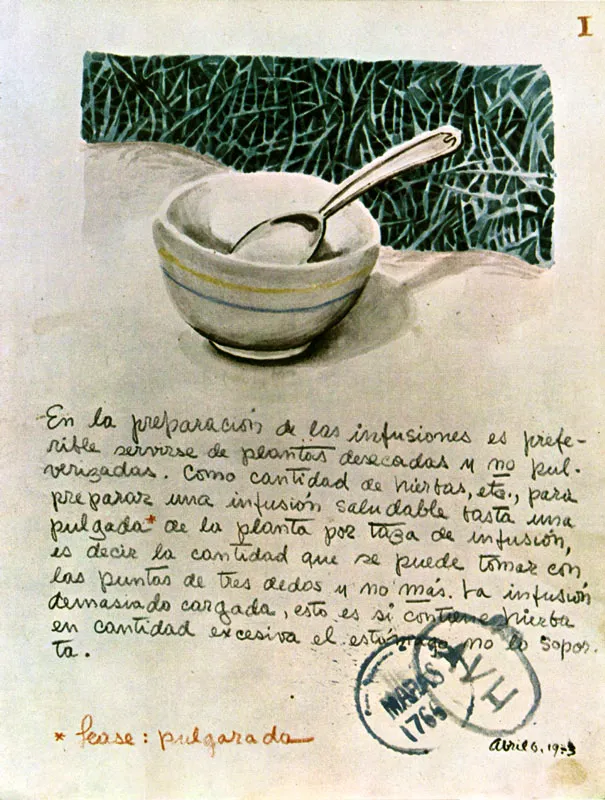 I
En la preparación de las infusiones es prefe-
rible servirse de plantas desecadas y no pul-
verizadas. Como cantidad de hierbas, etc., para
preparar una infusión saludable basta una
pulgada* de la planta por taza de infusión,
es decir la cantidad que se puede tomar con
las puntas de tres dedos y no más. La infusión
demasiado cargada, esto es si contiene hierba
en cantidad excesiva el estómago no lo sopor-
ta.
MAPAS
1766
* léase: pulgarada
Abril 6, 1973